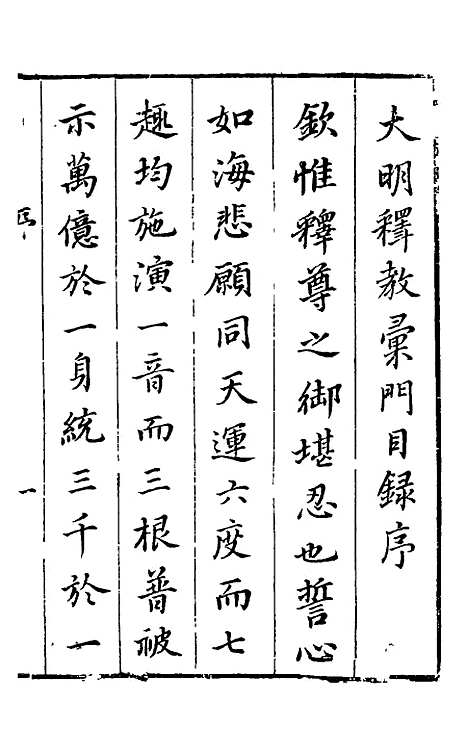 大明釋教彙門目録序
欽惟釋尊之御堪忍也誓心
如海悲願同天運六度而七
趣均施演一音而三根普被
示萬億於一身統三千於一
一